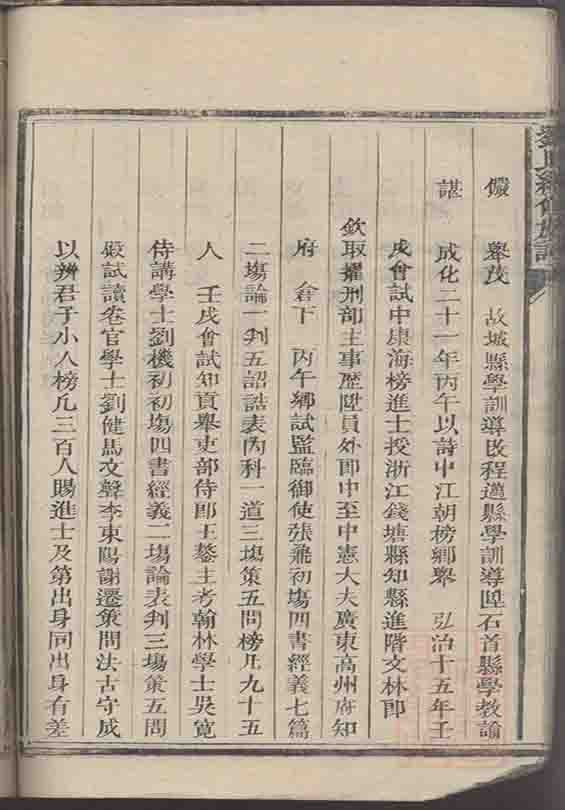 儼 舉茂 故城縣學訓導改程邁縣學訓導陞石首縣學教諭
諶 成化二十一年丙午以詩中江朝榜鄉舉 弘治十五年壬
戌會試中康海榜進士授浙江錢塘縣知縣進階文林郎
欽取擢刑部主事歷陞員外郎中至中憲大夫廣東高州府知
府 倉下 丙午鄉試監臨御使張飛初塲四書經義七篇
二塲論一判五詔誥表內科一道三塲策五問榜凡九十五
人 壬戌會試知貢舉吏部侍郎王鏊主考翰林學士吳寬
侍講學士劉機初初塲四書經義二塲論表判三塲策五問
殿試讀卷官學士劉健馬文聲李東陽謝遷策問法古守成
以辨君子小人榜凡三百人賜進士及第出身同出身有差